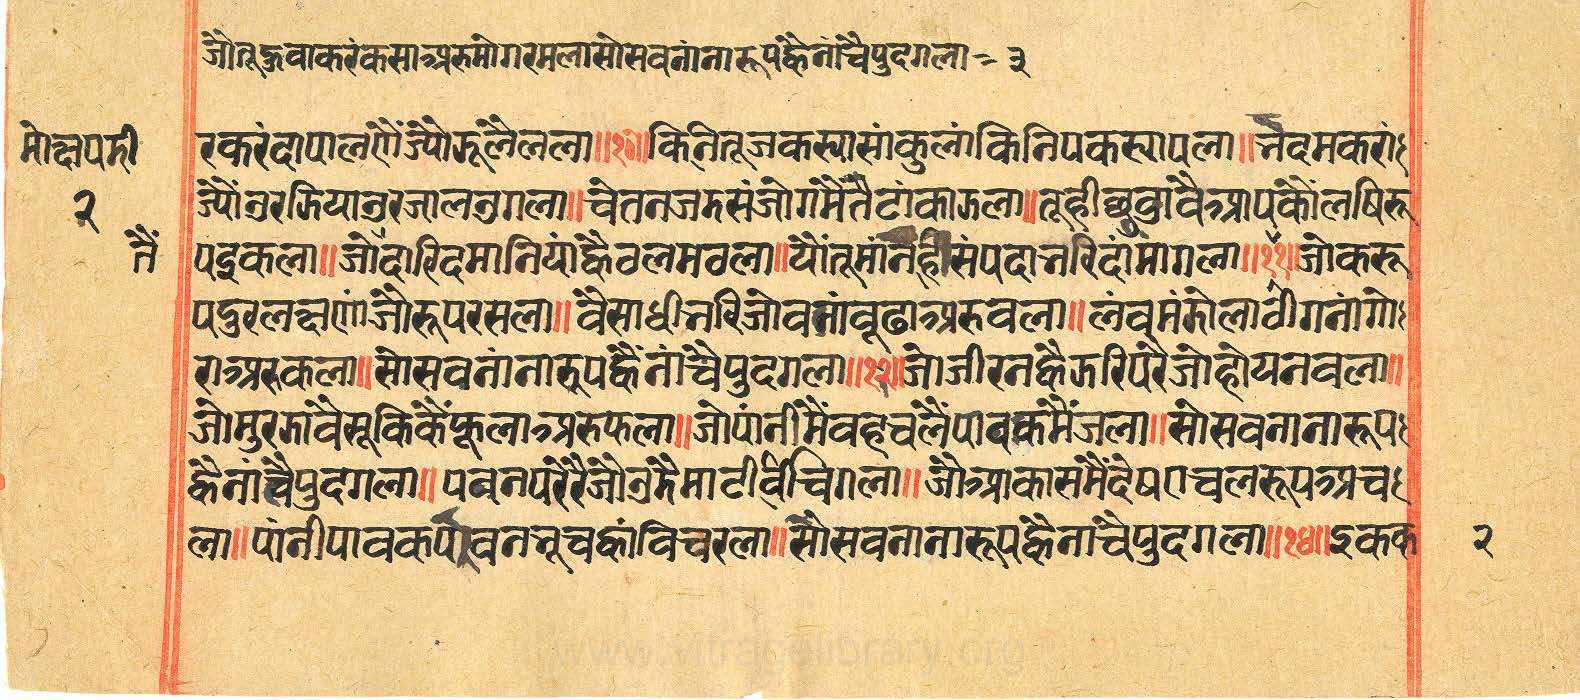 जोतूकुवाकरंकसाअरुमोगरमलासोसवनांनारूपह्वैनांचैपुदगला = ३
मोक्षपडी
रकरंदापालणैंज्यौफूलैलला॥१०॥किनितूजकस्यासांकुलांकिनिपकस्यापला॥नैदमकरां
२
ज्यौंउरझियाउरजालउगला॥चेतनजडसंजोगमैंतैटांकाझला॥तूहीछुडावैआपकौंलषिरू
नैं
पइकला॥जोदारिदमानियांह्वैवलमवला॥यौंतूमांनहीसंपदाभरिदांमांगला॥११॥जोकरू
पदुरलक्षणांजौरूपरसला॥वैसाधीभरिजोवनांवूढाअरुवला॥लंवमंझोलाठीगनांगो
राअरुकला॥सोसवनांनारूपह्वैंनांचैपुदगला॥१२॥जोजीरनह्वैझरिपरैजोहोयनवला॥
जोमुरझावैसूकिकैंफूलाअरुफला॥जोपांनीमैंवहचलैंपावकमैंजला॥सोसवनानारूप
ह्वैनांचैपुदगला॥पवनपरैरैजौउडैमाटीवचिगला॥जोआकासमैंदेषणचलरूपअच
ला॥पांनीपावकपौवनभूचकांविचरला॥सोसवनानारूपह्वैनांचैपुदगला॥१४॥इकक
२
www.vitragelibrary.org